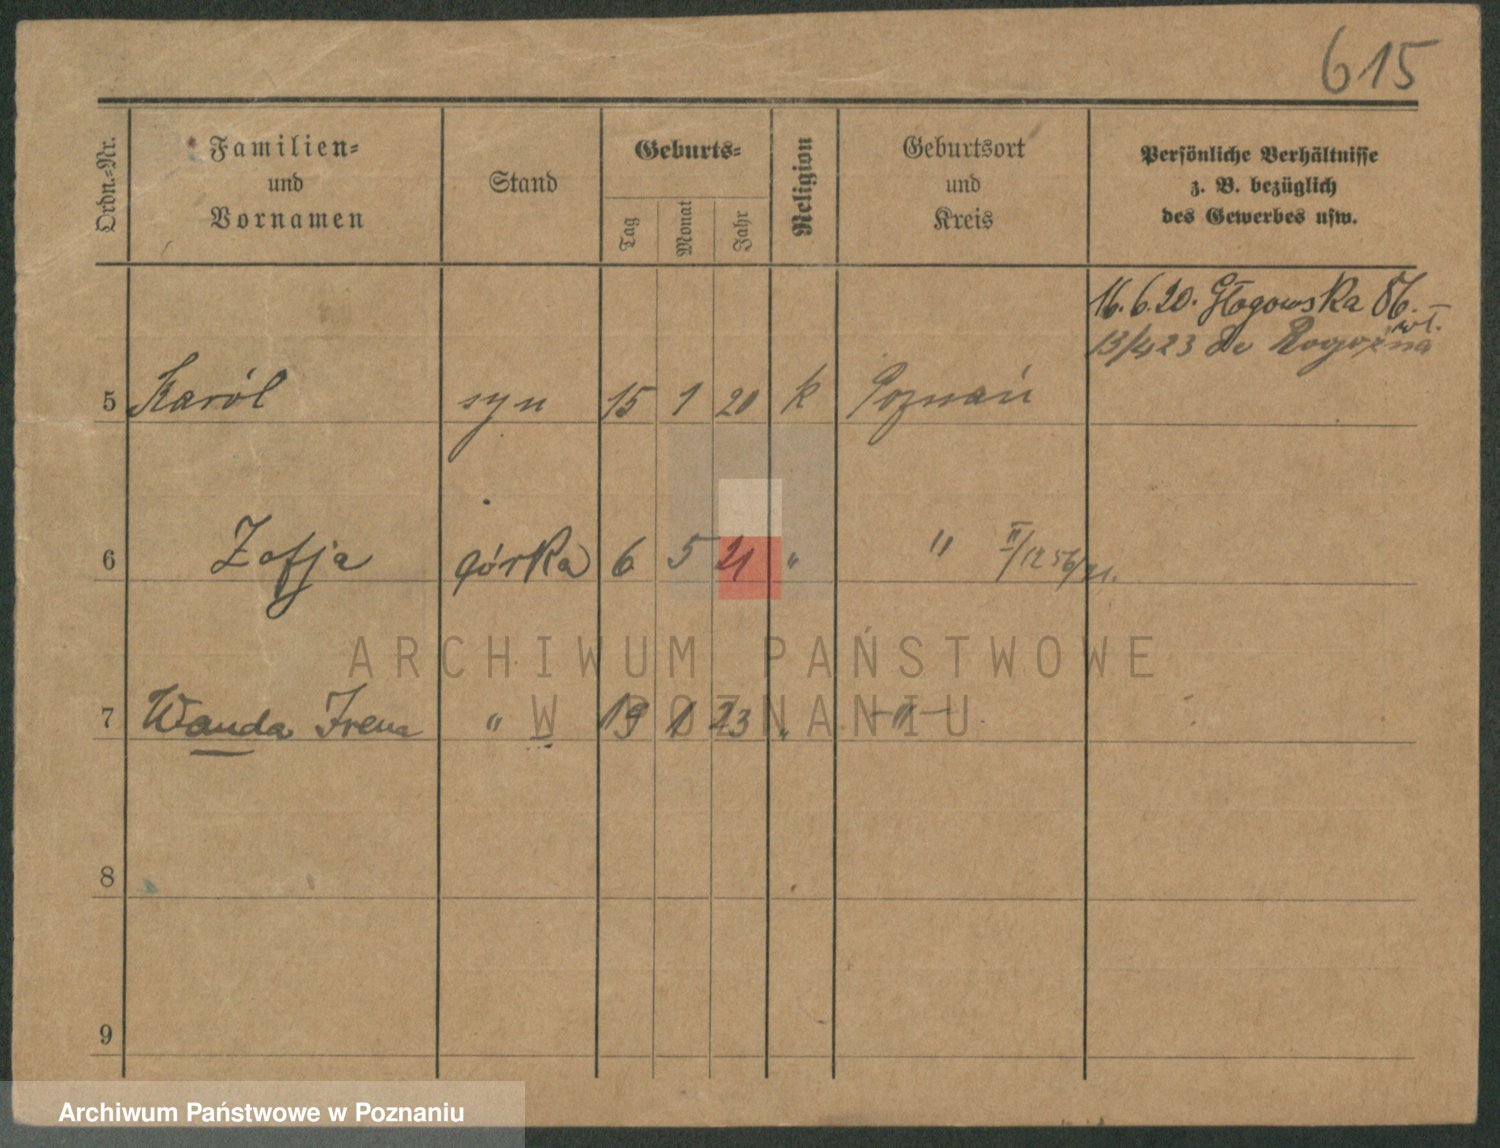 615
Ordn.-Nr.
Familien-
und
Vornamen
Stand
Geburts-
Tag
Monat
Jahr
Religion
Geburtsort
und
Kreis
Persönliche Verhältnisse
z. B. bezüglich
des Gewerbes usw.
16. 6. 20. Głogowska 86. –
wł.
13/4 23 do Rogoźna
5 Karól syn 15 1 20 k Poznań
6 Zofja córka 6 5 21 " "
7 Wanda Irena " 19 1 23 " —"—
8
9
ARCHIWUM PAŃSTWOWE
W POZNANIU
Archiwum Państwowe w Poznaniu